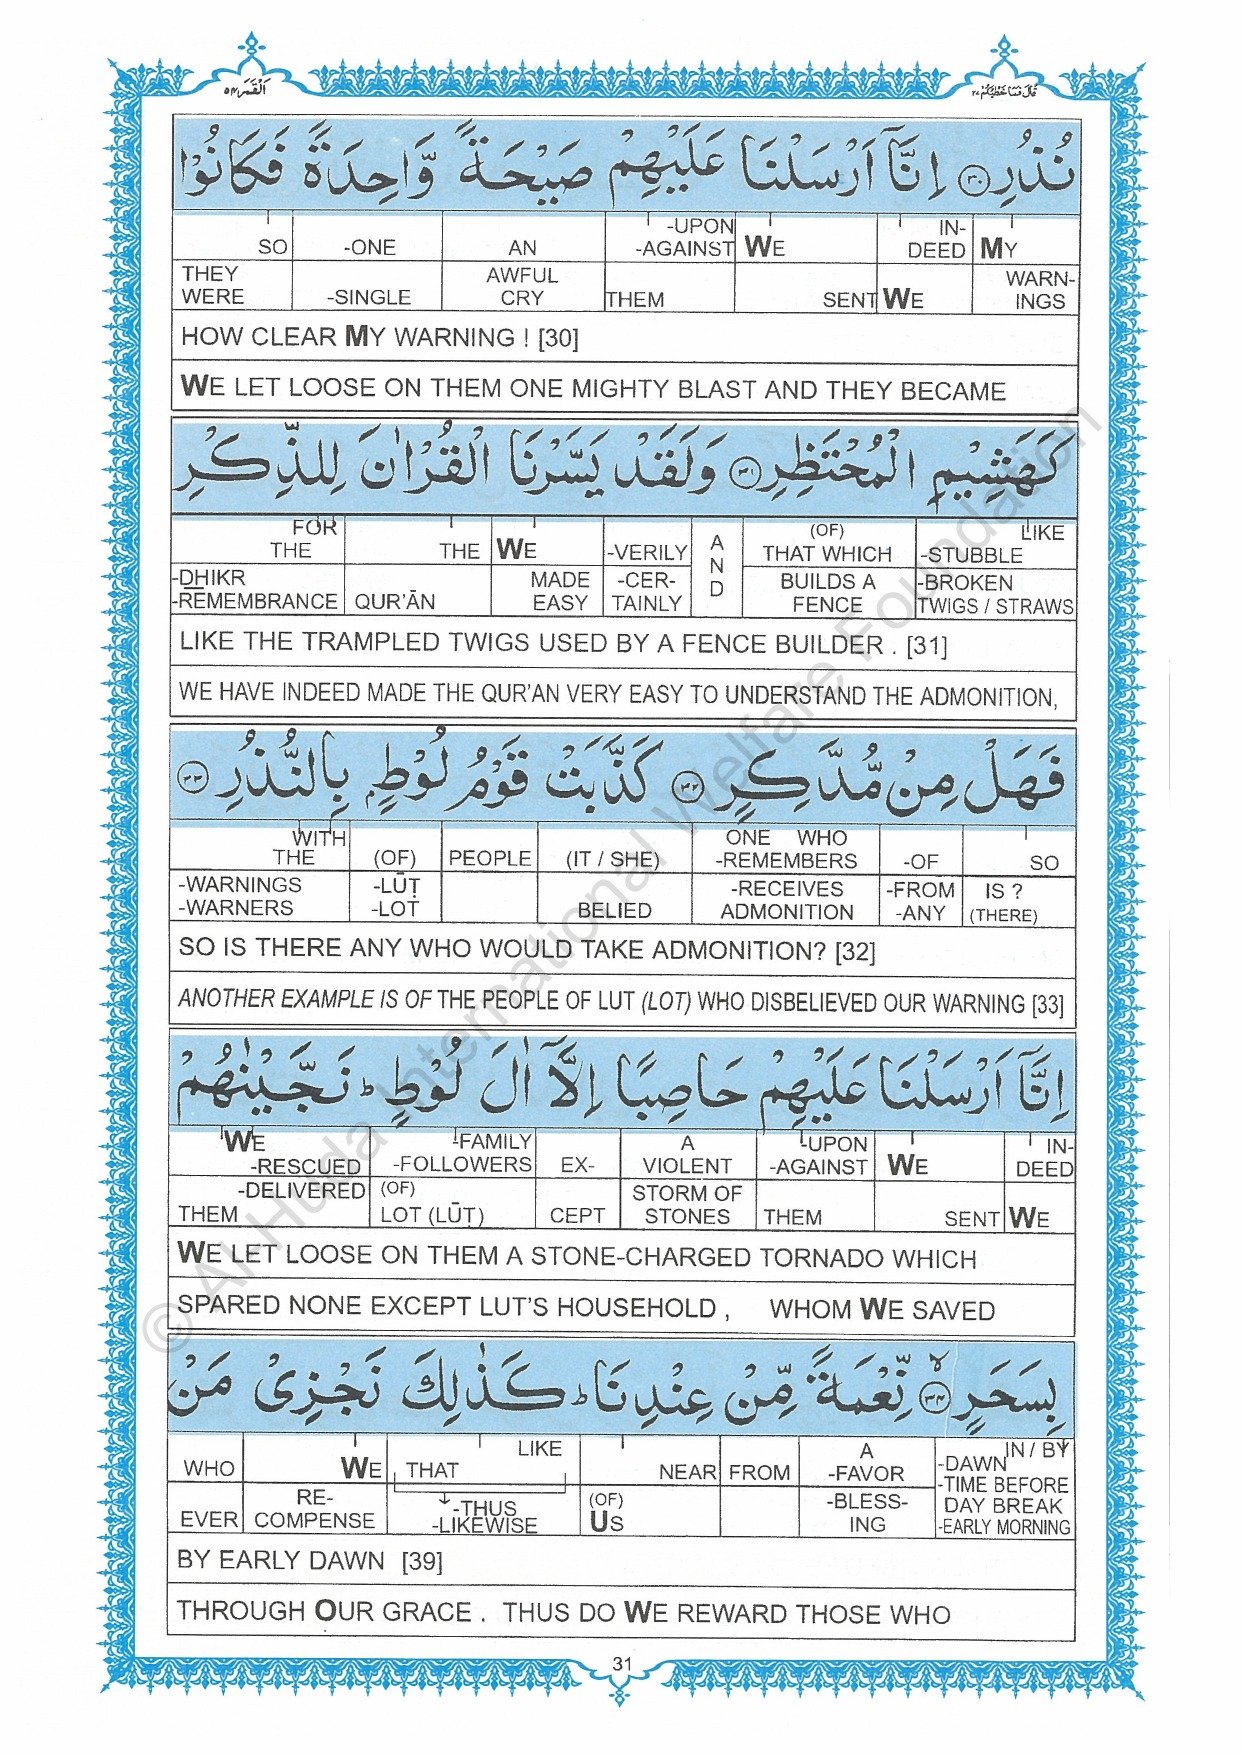 اَلْقَمَر ٥٤
قَالَ فَمَا خَطْبُكُمْ ٢٧
نُذُرِ ٣٠ اِنَّاۤ اَرْسَلْنَا عَلَيْهِمْ صَيْحَةً وَّاحِدَةً فَكَانُوْا
SO -ONE AN -UPON -AGAINST WE IN-DEED MY
THEY WERE -SINGLE AWFUL CRY THEM SENT WE WARN-INGS
HOW CLEAR MY WARNING ! [30]
WE LET LOOSE ON THEM ONE MIGHTY BLAST AND THEY BECAME
كَهَشِيْمِ الْمُحْتَظِرِ ٣١ وَلَقَدْ يَسَّرْنَا الْقُرْاٰنَ لِلذِّكْرِ
FOR THE THE WE -VERILY AND (OF) THAT WHICH LIKE -STUBBLE
-DHIKR -REMEMBRANCE QUR’ĀN MADE EASY -CER-TAINLY BUILDS A FENCE -BROKEN TWIGS / STRAWS
LIKE THE TRAMPLED TWIGS USED BY A FENCE BUILDER . [31]
WE HAVE INDEED MADE THE QUR’AN VERY EASY TO UNDERSTAND THE ADMONITION,
فَهَلْ مِنْ مُّدَّكِرٍ ٣٢ كَذَّبَتْ قَوْمُ لُوْطٍۭ بِالنُّذُرِ ٣٣
WITH THE (OF) PEOPLE (IT / SHE) ONE WHO -REMEMBERS -OF SO
-WARNINGS -WARNERS -LŪṬ -LOT BELIED -RECEIVES ADMONITION -FROM -ANY IS ? (THERE)
SO IS THERE ANY WHO WOULD TAKE ADMONITION? [32]
ANOTHER EXAMPLE IS OF THE PEOPLE OF LUT (LOT) WHO DISBELIEVED OUR WARNING [33]
اِنَّاۤ اَرْسَلْنَا عَلَيْهِمْ حَاصِبًا اِلَّاۤ اٰلَ لُوْطٍ ؕ نَجَّيْنٰهُمْ
WE -RESCUED -FAMILY -FOLLOWERS EX- A VIOLENT -UPON -AGAINST WE IN-DEED
-DELIVERED THEM (OF) LOT (LŪṬ) CEPT STORM OF STONES THEM SENT WE
WE LET LOOSE ON THEM A STONE-CHARGED TORNADO WHICH
SPARED NONE EXCEPT LUT’S HOUSEHOLD , WHOM WE SAVED
بِسَحَرٍ ٣٤ ۙ نِّعْمَةً مِّنْ عِنْدِنَا ؕ كَذٰلِكَ نَجْزِىْ مَنْ
WHO WE LIKE THAT NEAR FROM A -FAVOR IN / BY -DAWN -TIME BEFORE
EVER RE-COMPENSE -THUS -LIKEWISE (OF) US -BLESS-ING DAY BREAK -EARLY MORNING
BY EARLY DAWN [39]
THROUGH OUR GRACE . THUS DO WE REWARD THOSE WHO
31
© Al-Huda International Welfare Foundation